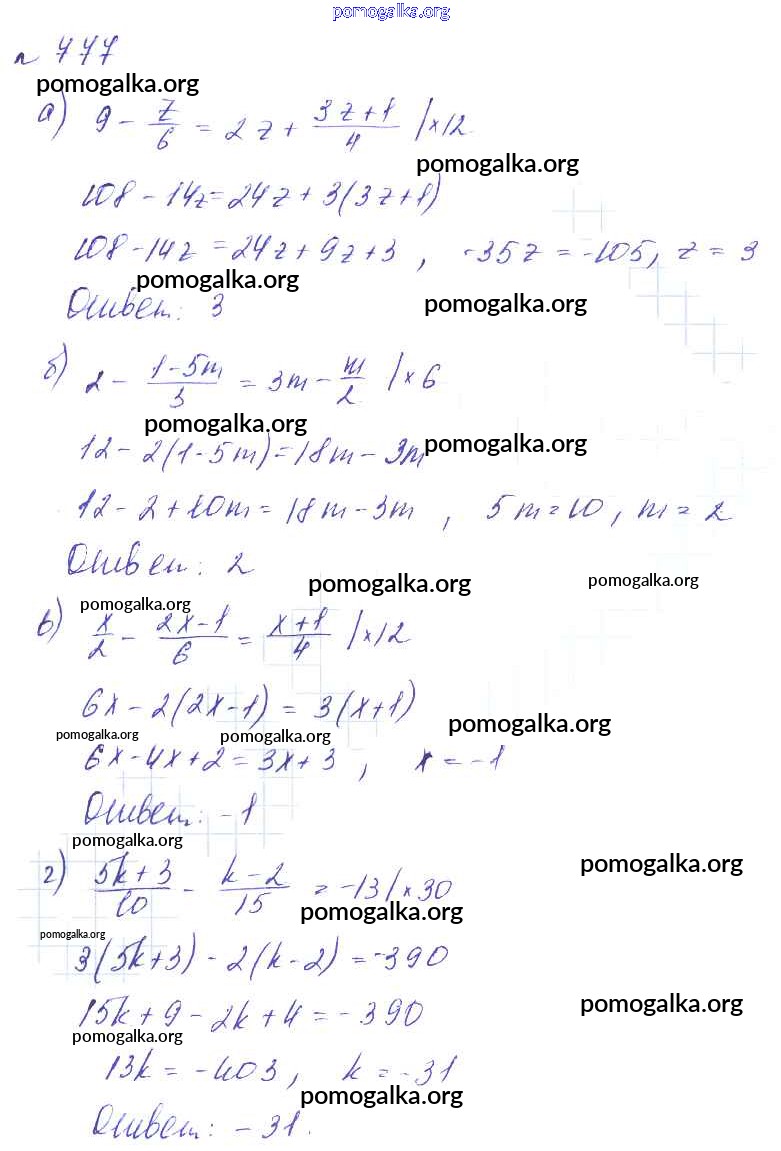 pomogalka.org
№ 777
pomogalka.org
а) 9 - z/6 = 2z + (3z+1)/4 |×12
pomogalka.org
108 - 14z = 24z + 3(3z+1)
108 - 14z = 24z + 9z + 3, -35z = -105, z = 3
pomogalka.org
Ответ: 3
pomogalka.org
б) 2 - (1-5m)/3 = 3m - m/2 |×6
pomogalka.org
12 - 2(1-5m) = 18m - 3m
pomogalka.org
12 - 2 + 10m = 18m - 3m, 5m = 10, m = 2
Ответ: 2
pomogalka.org
pomogalka.org
pomogalka.org
в) x/2 - (2x-1)/6 = (x+1)/4 |×12
6x - 2(2x-1) = 3(x+1)
pomogalka.org
pomogalka.org
pomogalka.org
6x - 4x + 2 = 3x + 3, x = -1
Ответ: -1
pomogalka.org
pomogalka.org
г) (5k+3)/10 - (k-2)/15 = -13 |×30
pomogalka.org
pomogalka.org
3(5k+3) - 2(k-2) = -390
pomogalka.org
15k + 9 - 2k + 4 = -390
pomogalka.org
13k = -403, k = -31
pomogalka.org
Ответ: -31.